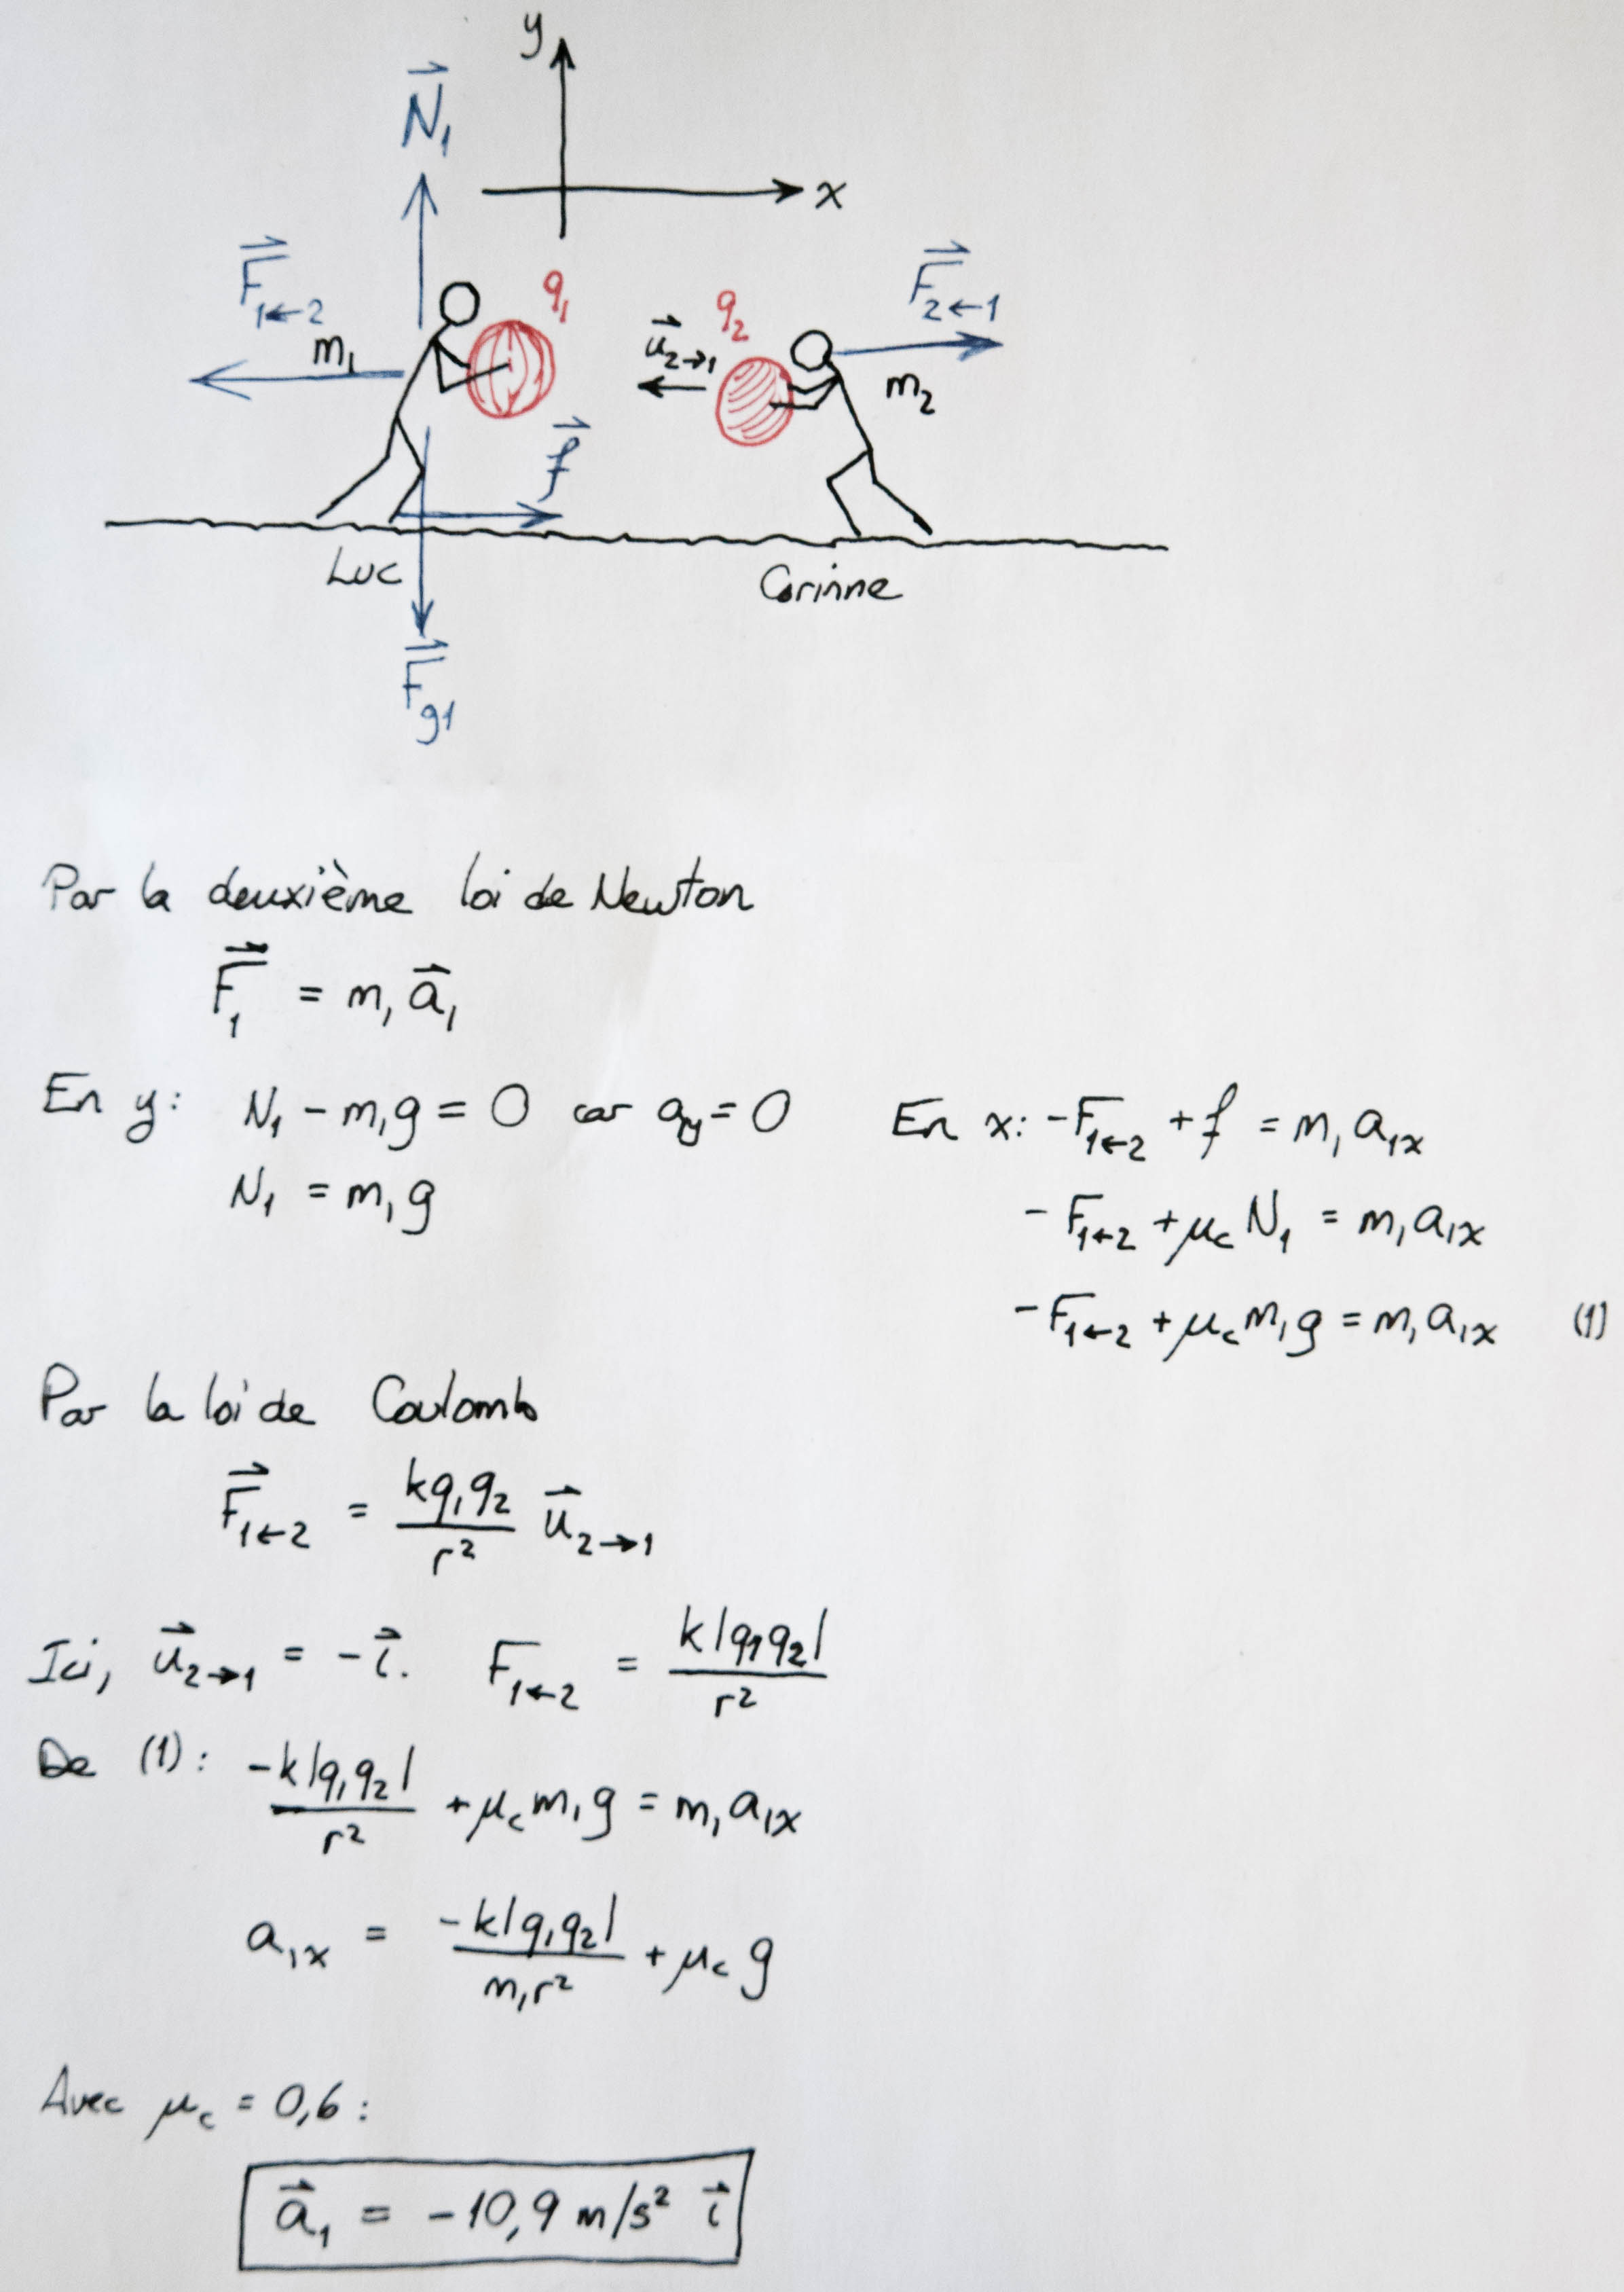 y
N⃗₁
x
F⃗₁←₂
q₁
q₂
F⃗₂←₁
m₁
u⃗₂→₁
m₂
f⃗
Luc
Corinne
F⃗g1
Par la deuxième loi de Newton
F⃗₁ = m₁a⃗₁
En y: N₁ - m₁g = 0 car a₁y = 0
N₁ = m₁g
En x: -F₁←₂ + f = m₁a₁x
-F₁←₂ + μc N₁ = m₁a₁x
-F₁←₂ + μc m₁g = m₁a₁x (1)
Par la loi de Coulomb
F⃗₁←₂ = kq₁q₂/r² u⃗₂→₁
Ici, u⃗₂→₁ = -i⃗. F₁←₂ = k|q₁q₂|/r²
De (1): -k|q₁q₂|/r² + μc m₁g = m₁a₁x
a₁x = -k|q₁q₂|/m₁r² + μc g
Avec μc = 0,6 :
a⃗₁ = -10,9 m/s² i⃗